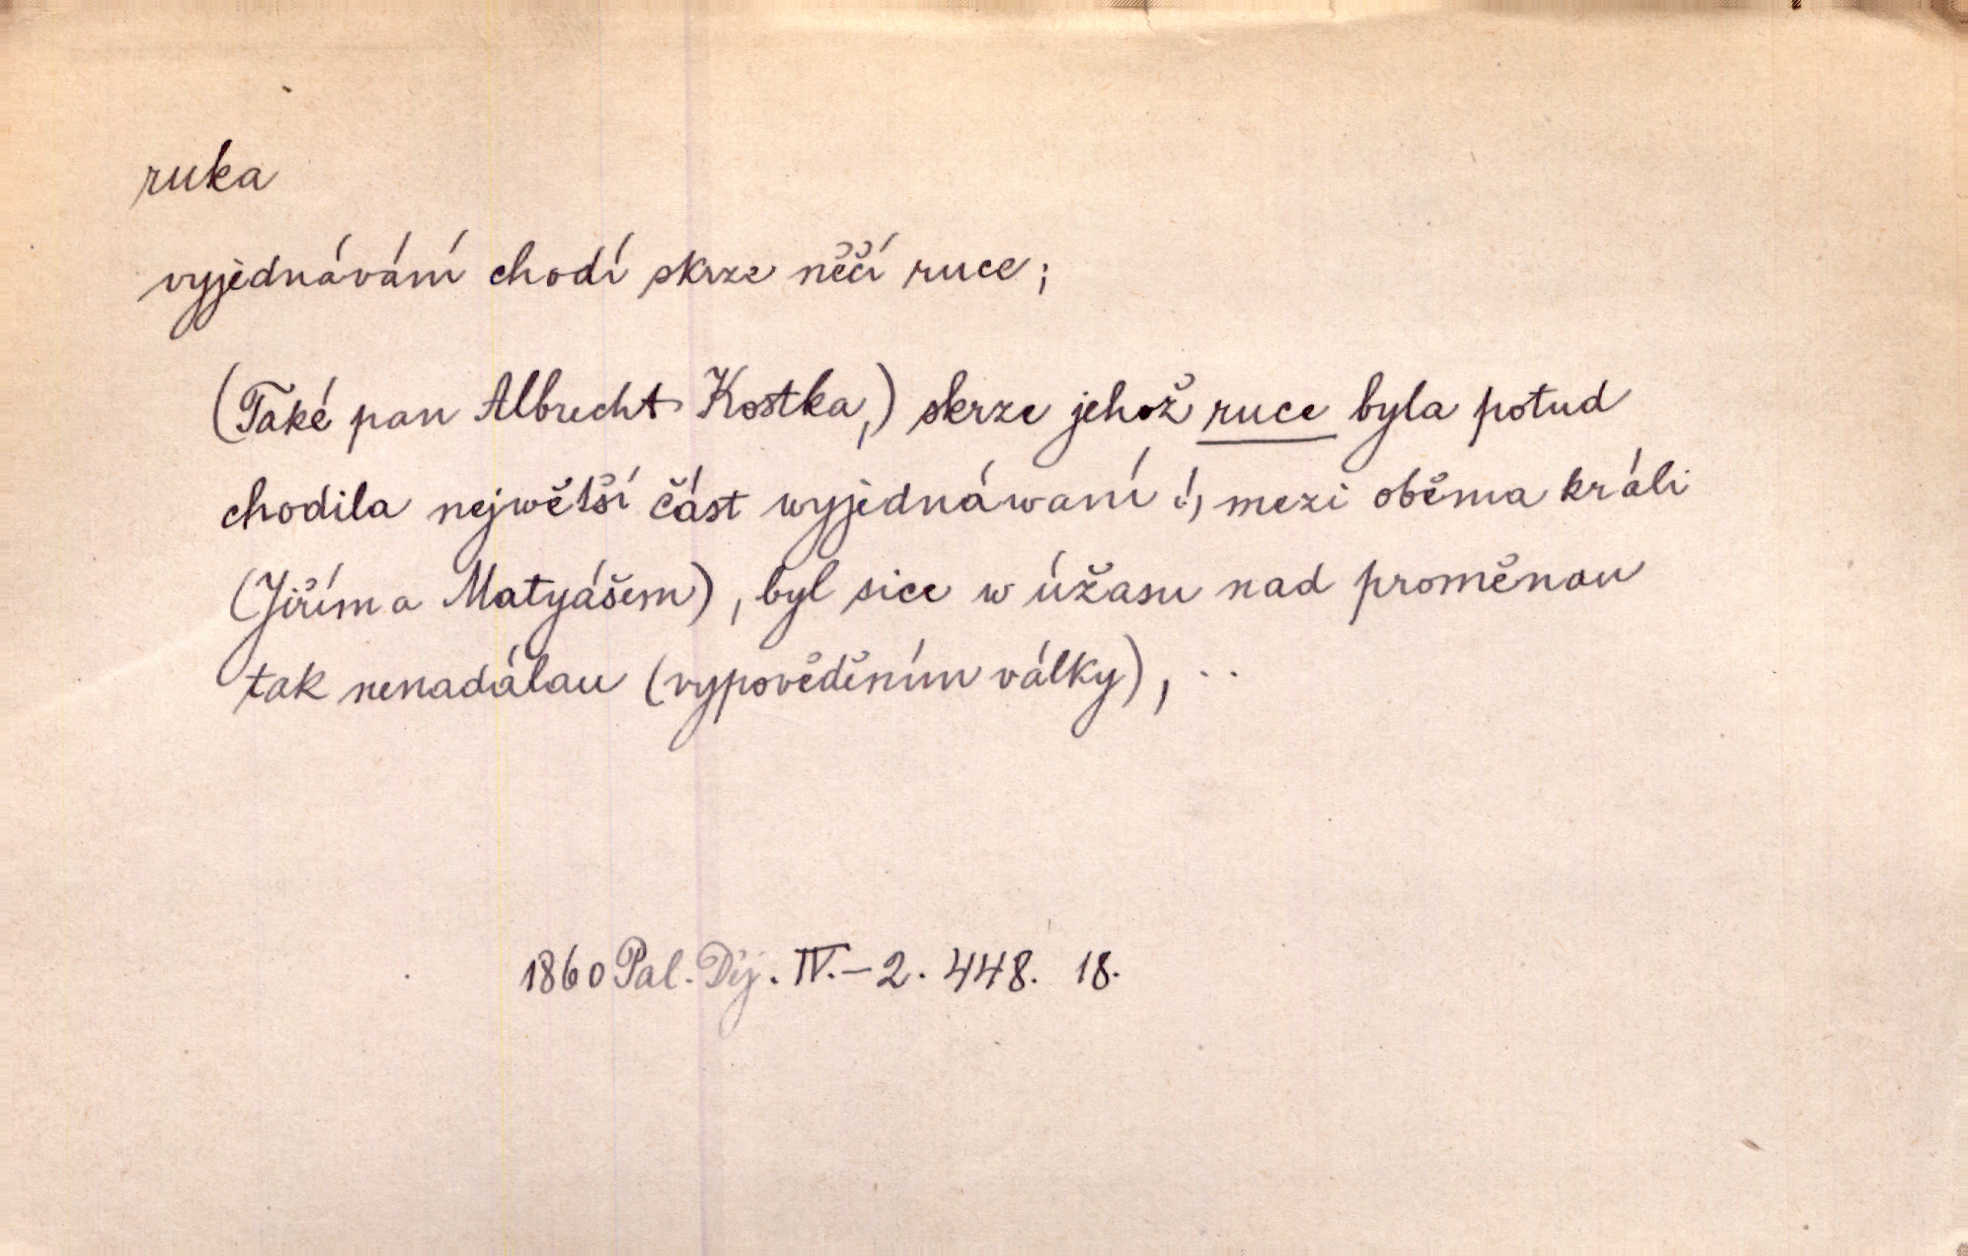 ruka
vyjednávání chodí skrze něčí ruce;
(Také pan Albrecht Kostka,) skrze jehož ruce byla potud
chodila nejwětší část wyjednáwaní !, mezi oběma králi
(Jiřím a Matyášem), byl sice w úžasu nad proměnau
tak nenadálau (vypověděním války), ..
1860 Pal. Děj. IV.-2. 448. 18.